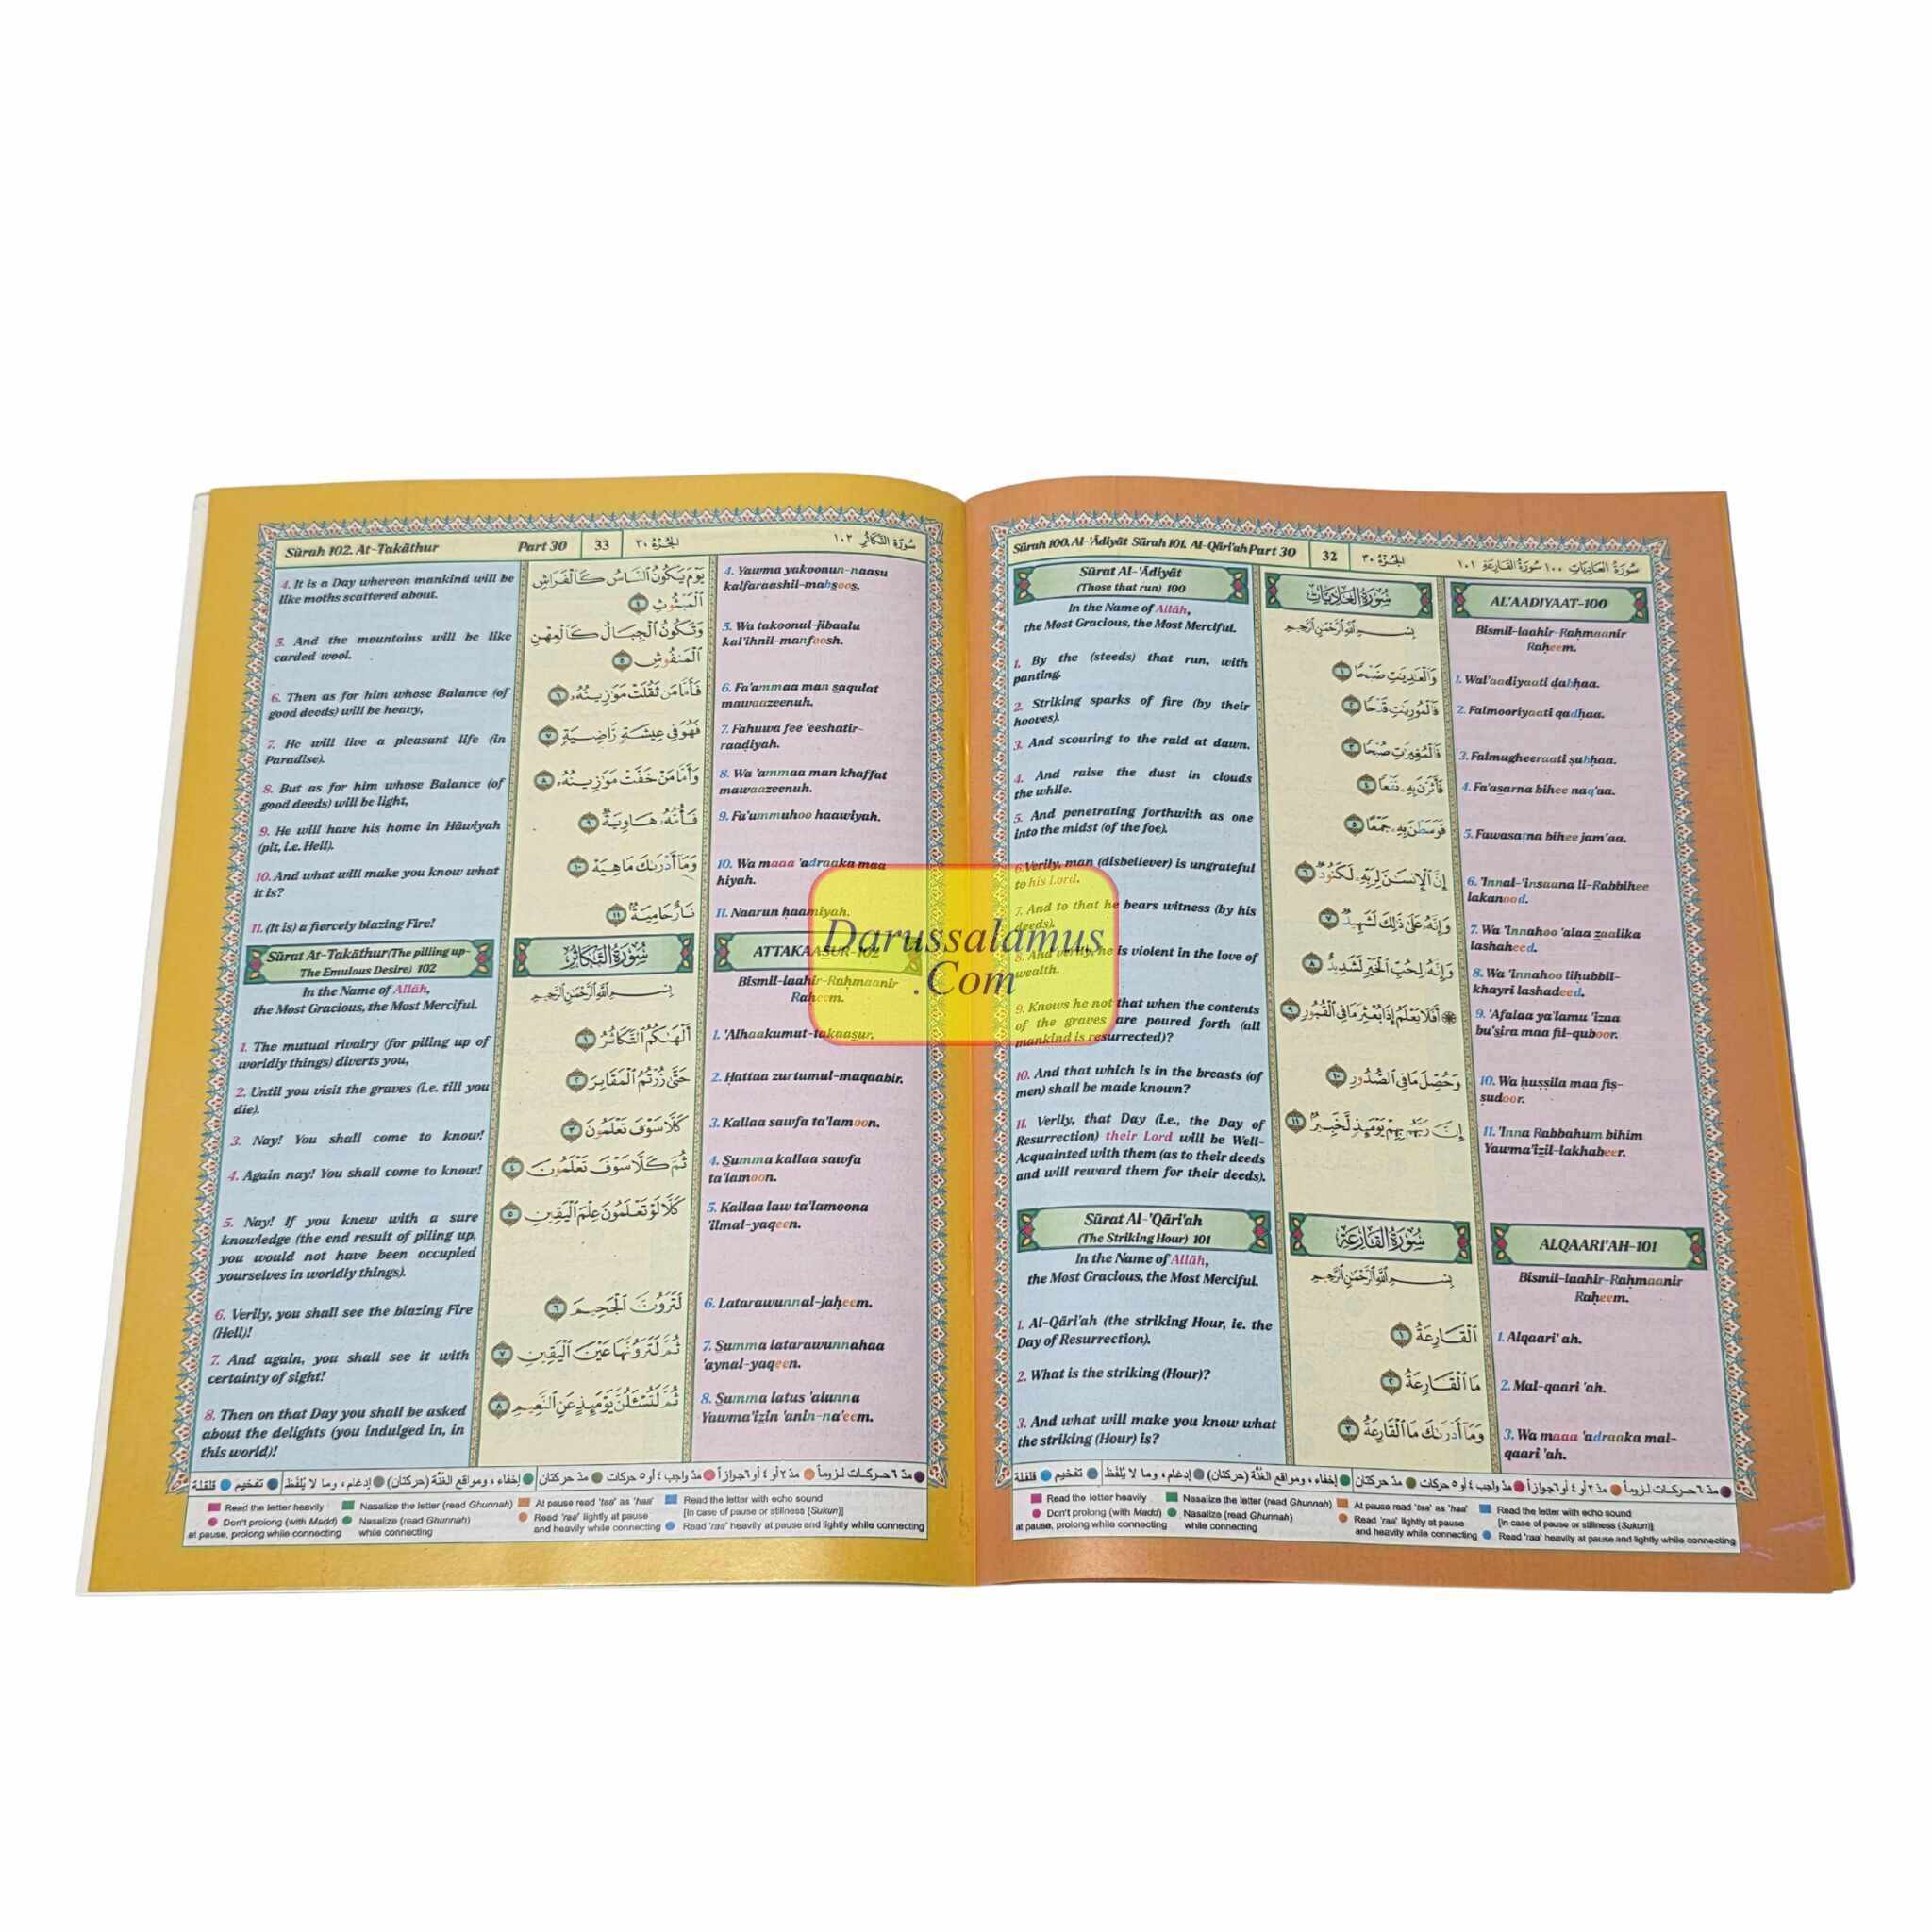 Sûrah 102. At-Takâthur
Part 30
33
الجزء ٣٠
سورة التكاثر ١٠٢
4. It is a Day whereon mankind will be
like moths scattered about.
5. And the mountains will be like
carded wool.
6. Then as for him whose Balance (of
good deeds) will be heavy,
7. He will live a pleasant life (in
Paradise).
8. But as for him whose Balance (of
good deeds) will be light,
9. He will have his home in Hâwiyah
(pit, i.e. Hell).
10. And what will make you know what
it is?
11. (It is) a fiercely blazing Fire!
Sûrat At-Takâthur (The pilling up-
The Emulous Desire) 102
In the Name of Allâh,
the Most Gracious, the Most Merciful.
1. The mutual rivalry (for piling up of
worldly things) diverts you,
2. Until you visit the graves (i.e. till you
die).
3. Nay! You shall come to know!
4. Again nay! You shall come to know!
5. Nay! If you knew with a sure
knowledge (the end result of piling up,
you would not have been occupied
yourselves in worldly things).
6. Verily, you shall see the blazing Fire
(Hell)!
7. And again, you shall see it with
certainty of sight!
8. Then on that Day you shall be asked
about the delights (you indulged in, in
this world)!
يَوْمَ يَكُونُ ٱلنَّاسُ كَٱلْفَرَاشِ
ٱلْمَبْثُوثِ ٤
وَتَكُونُ ٱلْجِبَالُ كَٱلْعِهْنِ
ٱلْمَنفُوشِ ٥
فَأَمَّا مَن ثَقُلَتْ مَوَٰزِينُهُۥ ٦
فَهُوَ فِى عِيشَةٍ رَّاضِيَةٍ ٧
وَأَمَّا مَنْ خَفَّتْ مَوَٰزِينُهُۥ ٨
فَأُمُّهُۥ هَاوِيَةٌ ٩
وَمَآ أَدْرَىٰكَ مَا هِيَهْ ١٠
نَارٌ حَامِيَةٌۢ ١١
سُورَةُ التَّكَاثُرِ
بِسْمِ ٱللَّهِ ٱلرَّحْمَٰنِ ٱلرَّحِيمِ
أَلْهَىٰكُمُ ٱلتَّكَاثُرُ ١
حَتَّىٰ زُرْتُمُ ٱلْمَقَابِرَ ٢
كَلَّا سَوْفَ تَعْلَمُونَ ٣
ثُمَّ كَلَّا سَوْفَ تَعْلَمُونَ ٤
كَلَّا لَوْ تَعْلَمُونَ عِلْمَ ٱلْيَقِينِ ٥
لَتَرَوُنَّ ٱلْجَحِيمَ ٦
ثُمَّ لَتَرَوُنَّهَا عَيْنَ ٱلْيَقِينِ ٧
ثُمَّ لَتُسْـَٔلُنَّ يَوْمَئِذٍ عَنِ ٱلنَّعِيمِ ٨
4. Yawma yakoonun-naasu
kalfaraashil-mabsoos.
5. Wa takoonul-jibaalu
kal'ihnil-manfoosh.
6. Fa'ammaa man s̱aqulat
mawaazeenuh.
7. Fahuwa fee 'eeshatir-
raaḍiyah.
8. Wa 'ammaa man khaffat
mawaazeenuh.
9. Fa'ummuhoo haawiyah.
10. Wa maaa 'adraaka maa
hiyah.
11. Naarun ḥaamiyah.
ATTAKAASUR-102
Bismil-laahir-Raḥmaanir
Raḥeem.
1. 'Alhaakumut-takaas̱ur.
2. Ḥattaa zurtumul-maqaabir.
3. Kallaa sawfa ta'lamoon.
4. S̱umma kallaa sawfa
ta'lamoon.
5. Kallaa law ta'lamoona
'ilmal-yaqeen.
6. Latarawunnal-jaḥeem.
7. S̱umma latarawunnahaa
'aynal-yaqeen.
8. S̱umma latus 'alunna
Yawma'iẕin 'anin-na'eem.
مدّ ٦ حركـات لـزوماً مدّ ٢ أو ٤ أو ٦ جوازاً مدّ واجب ٤ أو ٥ حركات مدّ حركتان إخفاء، ومواقع الغنّة (حركتان) إدغام، وما لا يُلفظ تفخيم قلقلة
Read the letter heavily
Nasalize the letter (read Ghunnah)
At pause read 'taa' as 'haa'
Read the letter with echo sound
[In case of pause or stillness (Sukun)]
Don't prolong (with Madd)
at pause, prolong while connecting
Nasalize (read Ghunnah)
while connecting
Read 'raa' lightly at pause
and heavily while connecting
Read 'raa' heavily at pause and lightly while connecting
Darussalamus
.Com
Sûrah 100. Al-'Âdiyât Sûrah 101. Al-Qâri'ah Part 30
32
الجزء ٣٠
سورة العاديات ١٠٠ سورة القارعة ١٠١
Sûrat Al-'Âdiyât
(Those that run) 100
In the Name of Allâh,
the Most Gracious, the Most Merciful.
1. By the (steeds) that run, with
panting.
2. Striking sparks of fire (by their
hooves).
3. And scouring to the raid at dawn.
4. And raise the dust in clouds
the while.
5. And penetrating forthwith as one
into the midst (of the foe).
6. Verily, man (disbeliever) is ungrateful
to his Lord.
7. And to that he bears witness (by his
deeds).
8. And verily, he is violent in the love of
wealth.
9. Knows he not that when the contents
of the graves are poured forth (all
mankind is resurrected)?
10. And that which is in the breasts (of
men) shall be made known?
11. Verily, that Day (i.e., the Day of
Resurrection) their Lord will be Well-
Acquainted with them (as to their deeds
and will reward them for their deeds).
Sûrat Al-'Qâri'ah
(The Striking Hour) 101
In the Name of Allâh,
the Most Gracious, the Most Merciful.
1. Al-Qâri'ah (the striking Hour, ie. the
Day of Resurrection).
2. What is the striking (Hour)?
3. And what will make you know what
the striking (Hour) is?
سُورَةُ العَادِيَاتِ
بِسْمِ ٱللَّهِ ٱلرَّحْمَٰنِ ٱلرَّحِيمِ
وَٱلْعَٰدِيَٰتِ ضَبْحًا ١
فَٱلْمُورِيَٰتِ قَدْحًا ٢
فَٱلْمُغِيرَٰتِ صُبْحًا ٣
فَأَثَرْنَ بِهِۦ نَقْعًا ٤
فَوَسَطْنَ بِهِۦ جَمْعًا ٥
إِنَّ ٱلْإِنسَٰنَ لِرَبِّهِۦ لَكَنُودٌ ٦
وَإِنَّهُۥ عَلَىٰ ذَٰلِكَ لَشَهِيدٌ ٧
وَإِنَّهُۥ لِحُبِّ ٱلْخَيْرِ لَشَدِيدٌ ٨
۞ أَفَلَا يَعْلَمُ إِذَا بُعْثِرَ مَا فِى ٱلْقُبُورِ ٩
وَحُصِّلَ مَا فِى ٱلصُّدُورِ ١٠
إِنَّ رَبَّهُم بِهِمْ يَوْمَئِذٍ لَّخَبِيرٌۢ ١١
سُورَةُ القَارِعَةِ
بِسْمِ ٱللَّهِ ٱلرَّحْمَٰنِ ٱلرَّحِيمِ
ٱلْقَارِعَةُ ١
مَا ٱلْقَارِعَةُ ٢
وَمَآ أَدْرَىٰكَ مَا ٱلْقَارِعَةُ ٣
AL'AADIYAAT-100
Bismil-laahir-Raḥmaanir
Raḥeem.
1. Wal'aadiyaati ḍabḥaa.
2. Falmooriyaati qadḥaa.
3. Falmugheeraati ṣubḥaa.
4. Fa'as̱arna bihee naq'aa.
5. Fawasaṭna bihee jam'aa.
6. 'Innal-'insaana li-Rabbihee
lakanood.
7. Wa 'innahoo 'alaa ẕaalika
lashaheed.
8. Wa 'innahoo liḥubbil-
khayri lashadeed.
9. 'Afalaa ya'lamu 'iẕaa
bu's̱ira maa fil-quboor.
10. Wa ḥuṣṣila maa fiṣ-
ṣudoor.
11. 'Inna Rabbahum bihim
Yawma'iẕil-lakhabeer.
ALQAARI'AH-101
Bismil-laahir-Raḥmaanir
Raḥeem.
1. Alqaari' ah.
2. Mal-qaari 'ah.
3. Wa maaa 'adraaka mal-
qaari 'ah.
مدّ ٦ حركـات لـزوماً مدّ ٢ أو ٤ أو ٦ جوازاً مدّ واجب ٤ أو ٥ حركات مدّ حركتان إخفاء، ومواقع الغنّة (حركتان) إدغام، وما لا يُلفظ تفخيم قلقلة
Read the letter heavily
Nasalize the letter (read Ghunnah)
At pause read 'taa' as 'haa'
Read the letter with echo sound
[In case of pause or stillness (Sukun)]
Don't prolong (with Madd)
at pause, prolong while connecting
Nasalize (read Ghunnah)
while connecting
Read 'raa' lightly at pause
and heavily while connecting
Read 'raa' heavily at pause and lightly while connecting